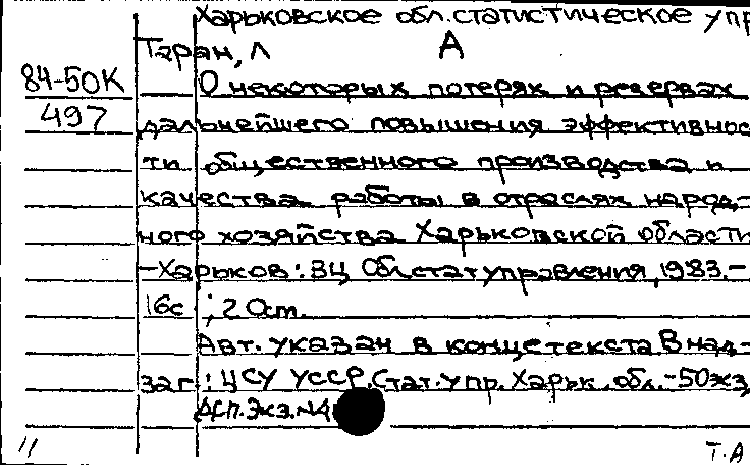 Харьковское обл. статистическое упр
Таран, Л А
84-50К О некоторых потерях и резервах
497 дальнейшего повышения эффективнос
ти общественного производства и
качества работы в отраслях народ-
ного хозяйства Харьковской области
-Харьков: ВЦ Облстатуправления, 1983.-
16с ; 20см.
Авт. указан в конце текста В над-
заг: ЦСУ УССР. Стат. упр. Харьк. обл. -50жз
ДСП. Экз. №4
11 Т.А